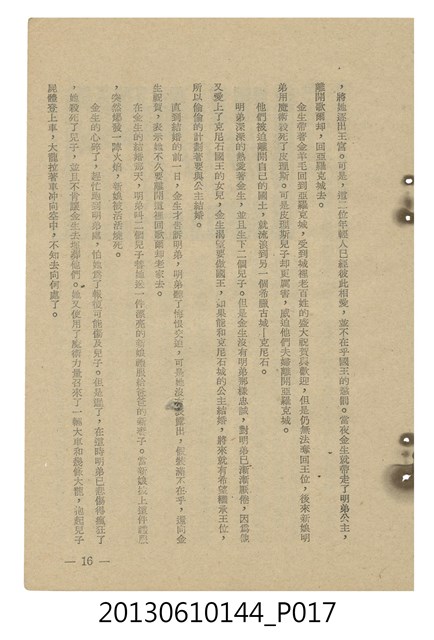 ，將她逐出王宮。可是，這二位年輕人已經彼此相愛，並不在乎國王的憤怒。當夜金生就帶走了明弟公主，
離開歌爾却，回亞羅克城去。
金生帶著金羊毛回到亞羅克城，受到城裡老百姓的盛大祝賀與歡迎，但是仍無法奪回王位，後來新娘明
弟用魔術殺死了皮理斯。可是皮理斯兒子却更厲害，威迫他們夫婦離開亞羅克城。
他們被迫離開自己的國土，就流浪到另一個希臘古城—克尼石。
明弟深深的熱愛著金生，並且生下二個兒子。但是金生沒有明弟那樣忠誠，對明弟已漸漸厭倦，因為他
又愛上了克尼石國王的女兒，金生渴望要做國王，如果能和克尼石城的公主結婚，將來就有希望繼承王位，
所以偷偷的計劃著要與公主結婚。
直到結婚的前一日，金生才告訴明弟，明弟聽了悔恨交迫，可是她沒有表露出，假裝滿不在乎，還向金
生祝賀，表示她不久要離開這裡回歌爾却老家去。
在金生的結婚那天，明弟叫二個兒子替她送一件漂亮的新娘禮服給爸爸的新妻子。當新娘披上這件禮服
，突然爆發一陣火焰，新娘被活活燒死。
金生的心碎了，趕忙跑到明弟處，怕她為了報復可能傷及兒子。但是遲了，在這時明弟已悲傷得瘋狂了
，她殺死了兒子，並且不肯讓金生去埋葬他們。她又使用了魔術力量召來了一輛大車和幾條大龍，抱起兒子
屍體登上車，大龍拉著車冲向空中，不知去向何處了。
— 16 —
20130610144_P017